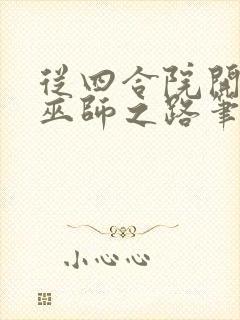 從四合院開
巫師之路筆
小心心